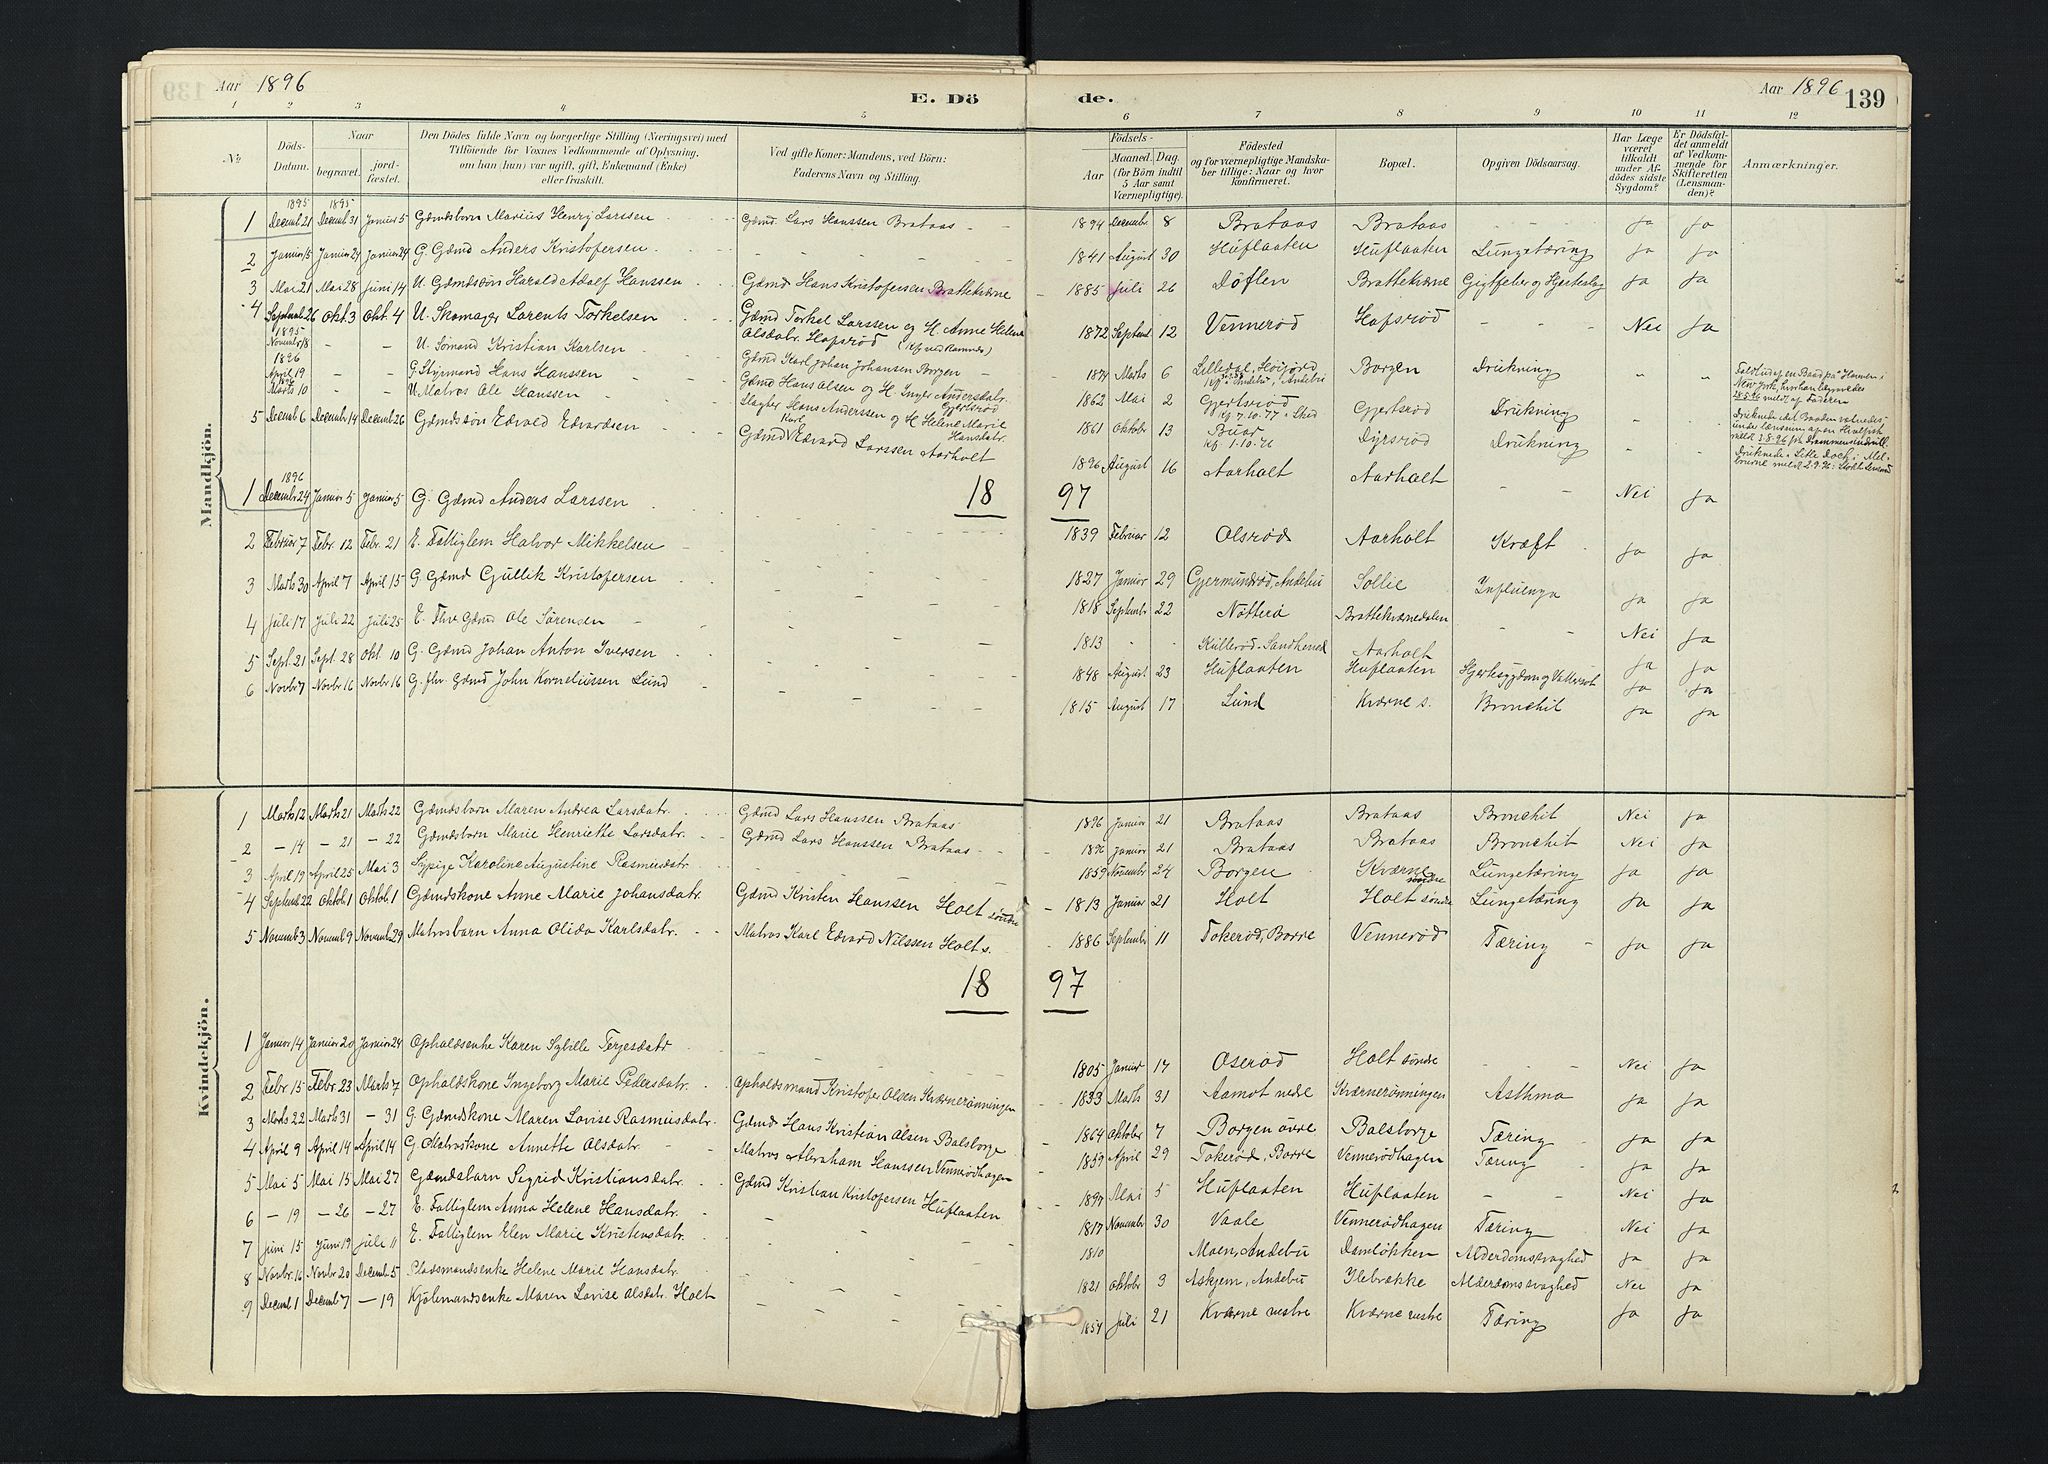 Aar 1896
E. Dö
de.
Aar 1896
139
1 2 3 4 5 6 7 8 9 10 11 12
No
Döds-Datum.
Naar
begravet.
jordfæstet.
Den Dödes fulde Navn og borgerlige Stilling (Næringsvei) med
Tilföiende for Voxnes Vedkommende af Oplysning,
om han (hun) var ugift, gift, Enkemand (Enke)
eller fraskilt.
Ved gifte Koner: Mandens, ved Börn:
Faderens Navn og Stilling.
Födsels-
Aar
Maaned. Dag.
(for Börn indtil
5 Aar samt
Værnepligtige).
Födested
og for værnepligtige Mandskaber tillige: Naar og hvor
konfirmeret.
Bopæl.
Opgiven Dödsaarsag.
Har Læge
været
tilkaldt
under Afdödes sidste
Sygdom?
Er Dödsfaldet anmeldt
af Vedkommende for
Skifteretten
(Lensmanden)?
Anmærkninger.
Mandkjön.
1895 1895
1 Decemb 21 Decemb 31 Januar 5 Gdmdsbarn Marius Henrij Larssen Gdmd. Lars Hanssen Brataas 1894 Decembr 8 Brataas Brataas - - ja ja
2 Januar 15 Januar 24 Januar 24 G. Gdmd Anders Kristofersen 1841 August 30 Huflaaten Huflaaten Lungetæring ja ja
3 Mai 21 Mai 28 Juni 14 U. Gdmdssön Harald Adolf Hanssen Gdmd Hans Kristofersen Brattekværne 1885 Juli 26 Döflen Brattekværne Gigtfeber og Hjerteslag ja ja
4 Septemb 26 Okt. 3 Okt. 4 U. Skomager Lorents Torkelsen Gdmd Torkel Larssen og H. Anne Helene Alsdabr. Hafsröd 1872 Septemb 12 Venneröd Hafsröd - - Nei ja
1895
Novemb 18 - - U. Sömand Kristian Karlsen Gdmd Karl Johan Johansen Borgen 1874 Marts 6 Lilledal, Höijord Borgen Drukning
1896
April 19 - - G. Styrmand Hans Hanssen Gdmd Hans Olsen og H. Inger Andersdatr. Gjertsröd 1862 Mai 2 Gjertsröd Kf. 7.10.77 i Sked Gjertsröd Drukning
Marts 10 - - U. Matros Ole Hanssen Slagter Hans Anderssen og H. Helene Marie Hansdatr. 1861 Oktobr 13 Buar Kf. 1.10.76 Dyrsröd Drukning
5 Decemb 6 Decembr 14 Decemb 26 Gdmdssön Edvald Edvardsen Gdmd Karl Edvard Larssen Aarholt 1896 August 16 Aarholt Aarholt - - Nei ja
18 97
1896
1 Decembr 24 Januar 5 Januar 5 G. Gdmd Anders Larssen 1839 Februar 12 Olsröd Aarholt Kræft ja ja
2 Februar 7 Febr. 12 Febr. 21 E. Fattiglem Halvor Mikkelsen 1827 Januar 29 Gjermundröd, Andebu Sollie Influenza ja ja
3 Marts 30 April 7 April 15 G. Gdmd Gullik Kristofersen 1818 Septembr 22 Nötterö Brattekværnedalen - - Nei ja
4 Juli 17 Juli 22 Juli 25 E. Fhv. Gdmd Ole Sörensen 1813 - - Kulleröd. Sandherred Aarholt ja ja
5 Sept. 21 Sept. 28 Okt. 10 G. Gdmd Johan Anton Iversen 1848 August 23 Huflaaten Huflaaten Hjertesygdom og Vattersot ja ja
6 Novbr 7 Novbr 16 Novbr 16 G. fhv. Gdmd John Korneliussen Lund 1815 August 17 Lund Kværne s. Bronchit ja ja
Kvindekjön.
1 Marts 12 Marts 21 Marts 22 Gdmdsbarn Maren Andrea Larsdatr. Gdmd Lars Hanssen Brataas 1896 Januar 21 Brataas Brataas Bronchit Nei ja
2 - 14 - 21 - 22 Gdmdsbarn Marie Henriette Larsdatr. Gdmd Lars Hanssen Brataas 1896 Januar 21 Brataas Brataas Bronchit Nei ja
3 April 19 April 25 Mai 3 Sypige Karoline Augustine Rasmusdatr. 1859 Novembr 24 Borgen Kværne søndre Lungetæring ja ja
4 Septemb 22 Oktob 1 Oktob. 1 Gdmdskone Anne Marie Johansdatr. Gdmd Kristen Hanssen Holt søndre 1813 Januar 21 Holt Holt søndre Lungetæring ja ja
5 Novemb 3 Novemb 9 Novemb 29 Matrosbarn Anna Olida Karlsdatr. Matros Karl Edvard Nilssen Holt s. 1886 Septembr 11 Tokeröd, Borre Venneröd Tæring - ja ja
18 97
1 Januar 14 Januar 20 Januar 24 Opholdsenke Karen Sybille Terjesdatr 1805 Januar 17 Oseröd Holt søndre - - Nei ja
2 Febr 15 Febr 23 Marts 7 Opholdskone Ingeborg Marie Pedersdatr. Opholdsmand Kristofer Olsen Kværnerönningen 1833 Marts 31 Aamot nedre Kværnerönningen Asthma ja ja
3 Marts 22 Marts 31 - 31 G. Gdmdskone Maren Lovise Rasmusdatr. Gdmd Hans Kristian Olsen Balsborge 1864 Oktober 7 Borgen övre Balsborge Tæring ja ja
4 April 9 April 14 April 14 G. Matroskone Annette Olsdatr. Matros Abraham Hanssen Vennerödhagen 1859 April 29 Tokeröd, Borre Vennerödhagen Tæring ja ja
5 Mai 5 Mai 15 Mai 27 Gdmdsbarn Sigrid Kristiansdatr. Gdmd Kristian Kristofersen Huflaaten 1897 Mai 5 Huflaaten Huflaaten - - Nei ja
6 - 19 - 26 - 27 E. Fattiglem Anna Helene Hansdatr. 1817 Novembr 30 Vaale Vennerödhagen Tæring Nei ja
7 Juni 15 Juni 19 Juli 11 E. Fattiglem Elen Marie Kristensdatr. 1810 Moen, Andebu Damlökken Alderdomssvaghed ja ja
8 Novbr. 16 Novbr 20 Decemb 5 Pladsmandsenke Helene Marie Hansdatr. 1821 Oktobr 3 Askjem, Andebu Ilebrække Alderdomssvaghed Nei ja
9 Decemb 1 Decemb 7 - 19 Kjölemandsenke Maren Lovise Olsdatr. Holt 1854 Juli 21 Kværne vestre Kværne vestre Tæring ja ja